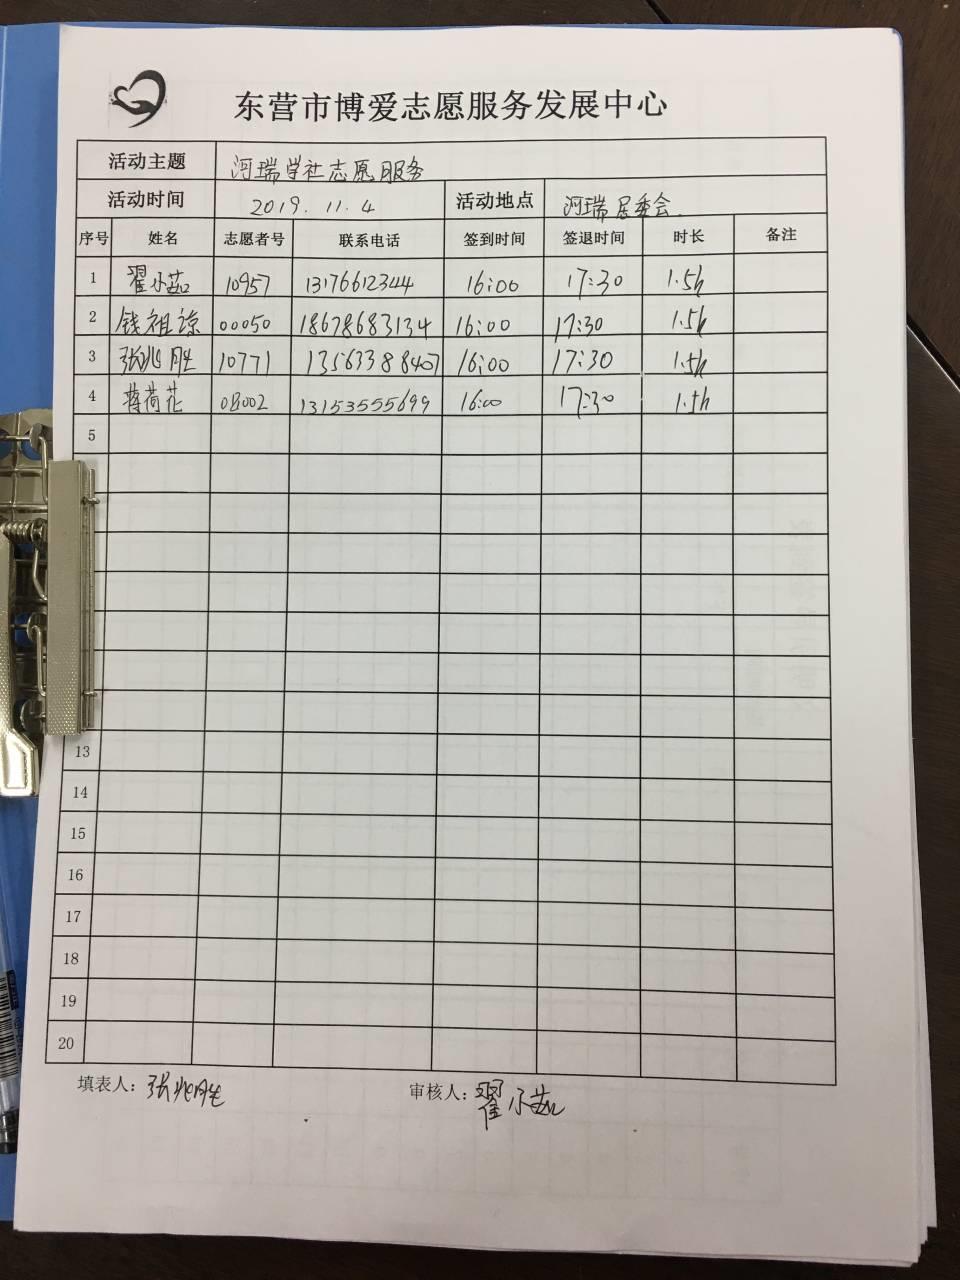 东营市博爱志愿服务发展中心
活动主题 河瑞学社志愿服务
活动时间 2019.11.4 活动地点 河瑞居委会
序号 姓名 志愿者号 联系电话 签到时间 签退时间 时长 备注
1 翟小茹 10957 13176612344 16:00 17:30 1.5h
2 钱祖谅 00050 18678683134 16:00 17:30 1.5h
3 张兆胜 10771 13563388407 16:00 17:30 1.5h
4 蒋荷花 0B002 13153555699 16:00 17:30 1.5h
5
13
14
15
16
17
18
19
20
填表人：张兆胜 审核人：翟小茹